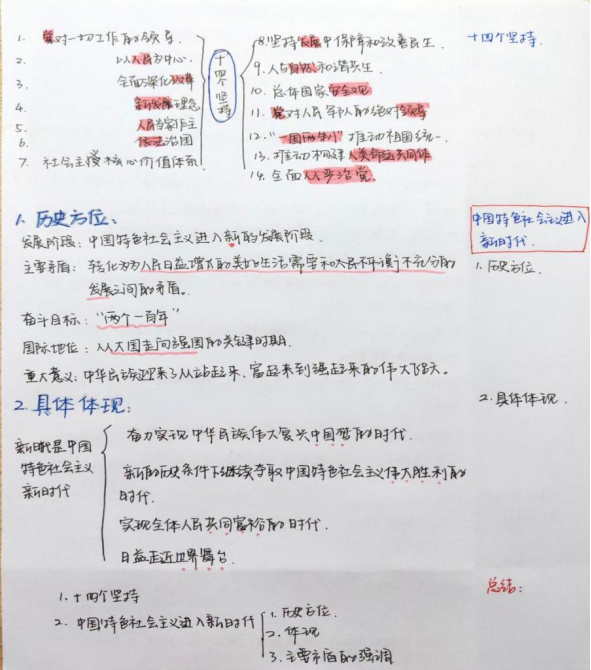 1. 党对一切工作的领导.
2. 以人民为中心.
3. 全面深化改革
4. 新发展理念
5. 人民当家作主
6. 依法治国
7. 社会主义核心价值体系
十四个坚持
8. 坚持发展中保障和改善民生
9. 人与自然和谐共生
10. 总体国家安全观
11. 党对人民军队的绝对领导
12. "一国两制"推动祖国统一.
13. 推动构建人类命运共同体
14. 全面从严治党.
十四个坚持.
1. 历史方位:
发展阶段: 中国特色社会主义进入新的发展阶段.
主要矛盾: 转化为为人民日益增长的美好生活需要和人民不平衡不充分的
发展之间的矛盾.
奋斗目标: "两个一百年"
国际地位: 从大国走向强国的关键时期.
重大意义: 中华民族迎来了从站起来、富起来到强起来的伟大飞跃.
中国特色社会主义进入
新时代.
1. 历史方位.
2. 具体体现:
新时代是中国
特色社会主义
新时代
奋力实现中华民族伟大复兴中国梦的时代.
新的历史条件下继续夺取中国特色社会主义伟大胜利的
时代.
实现全体人民共同富裕的时代.
日益走近世界舞台.
2. 具体体现.
1. 十四个坚持
2. 中国特色社会主义进入新时代
1. 历史方位.
2. 体现
3. 主要矛盾的强调
总结: